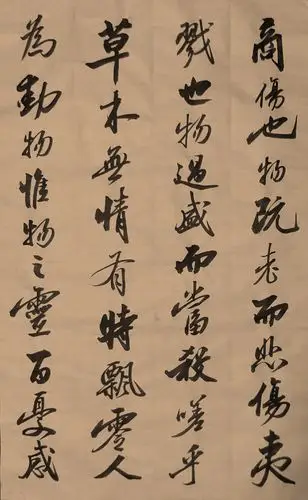 商傷也物既老而悲傷夷
戮也物過盛而當殺嗟乎
草木無情有時飄零人
為動物惟物之靈百憂感